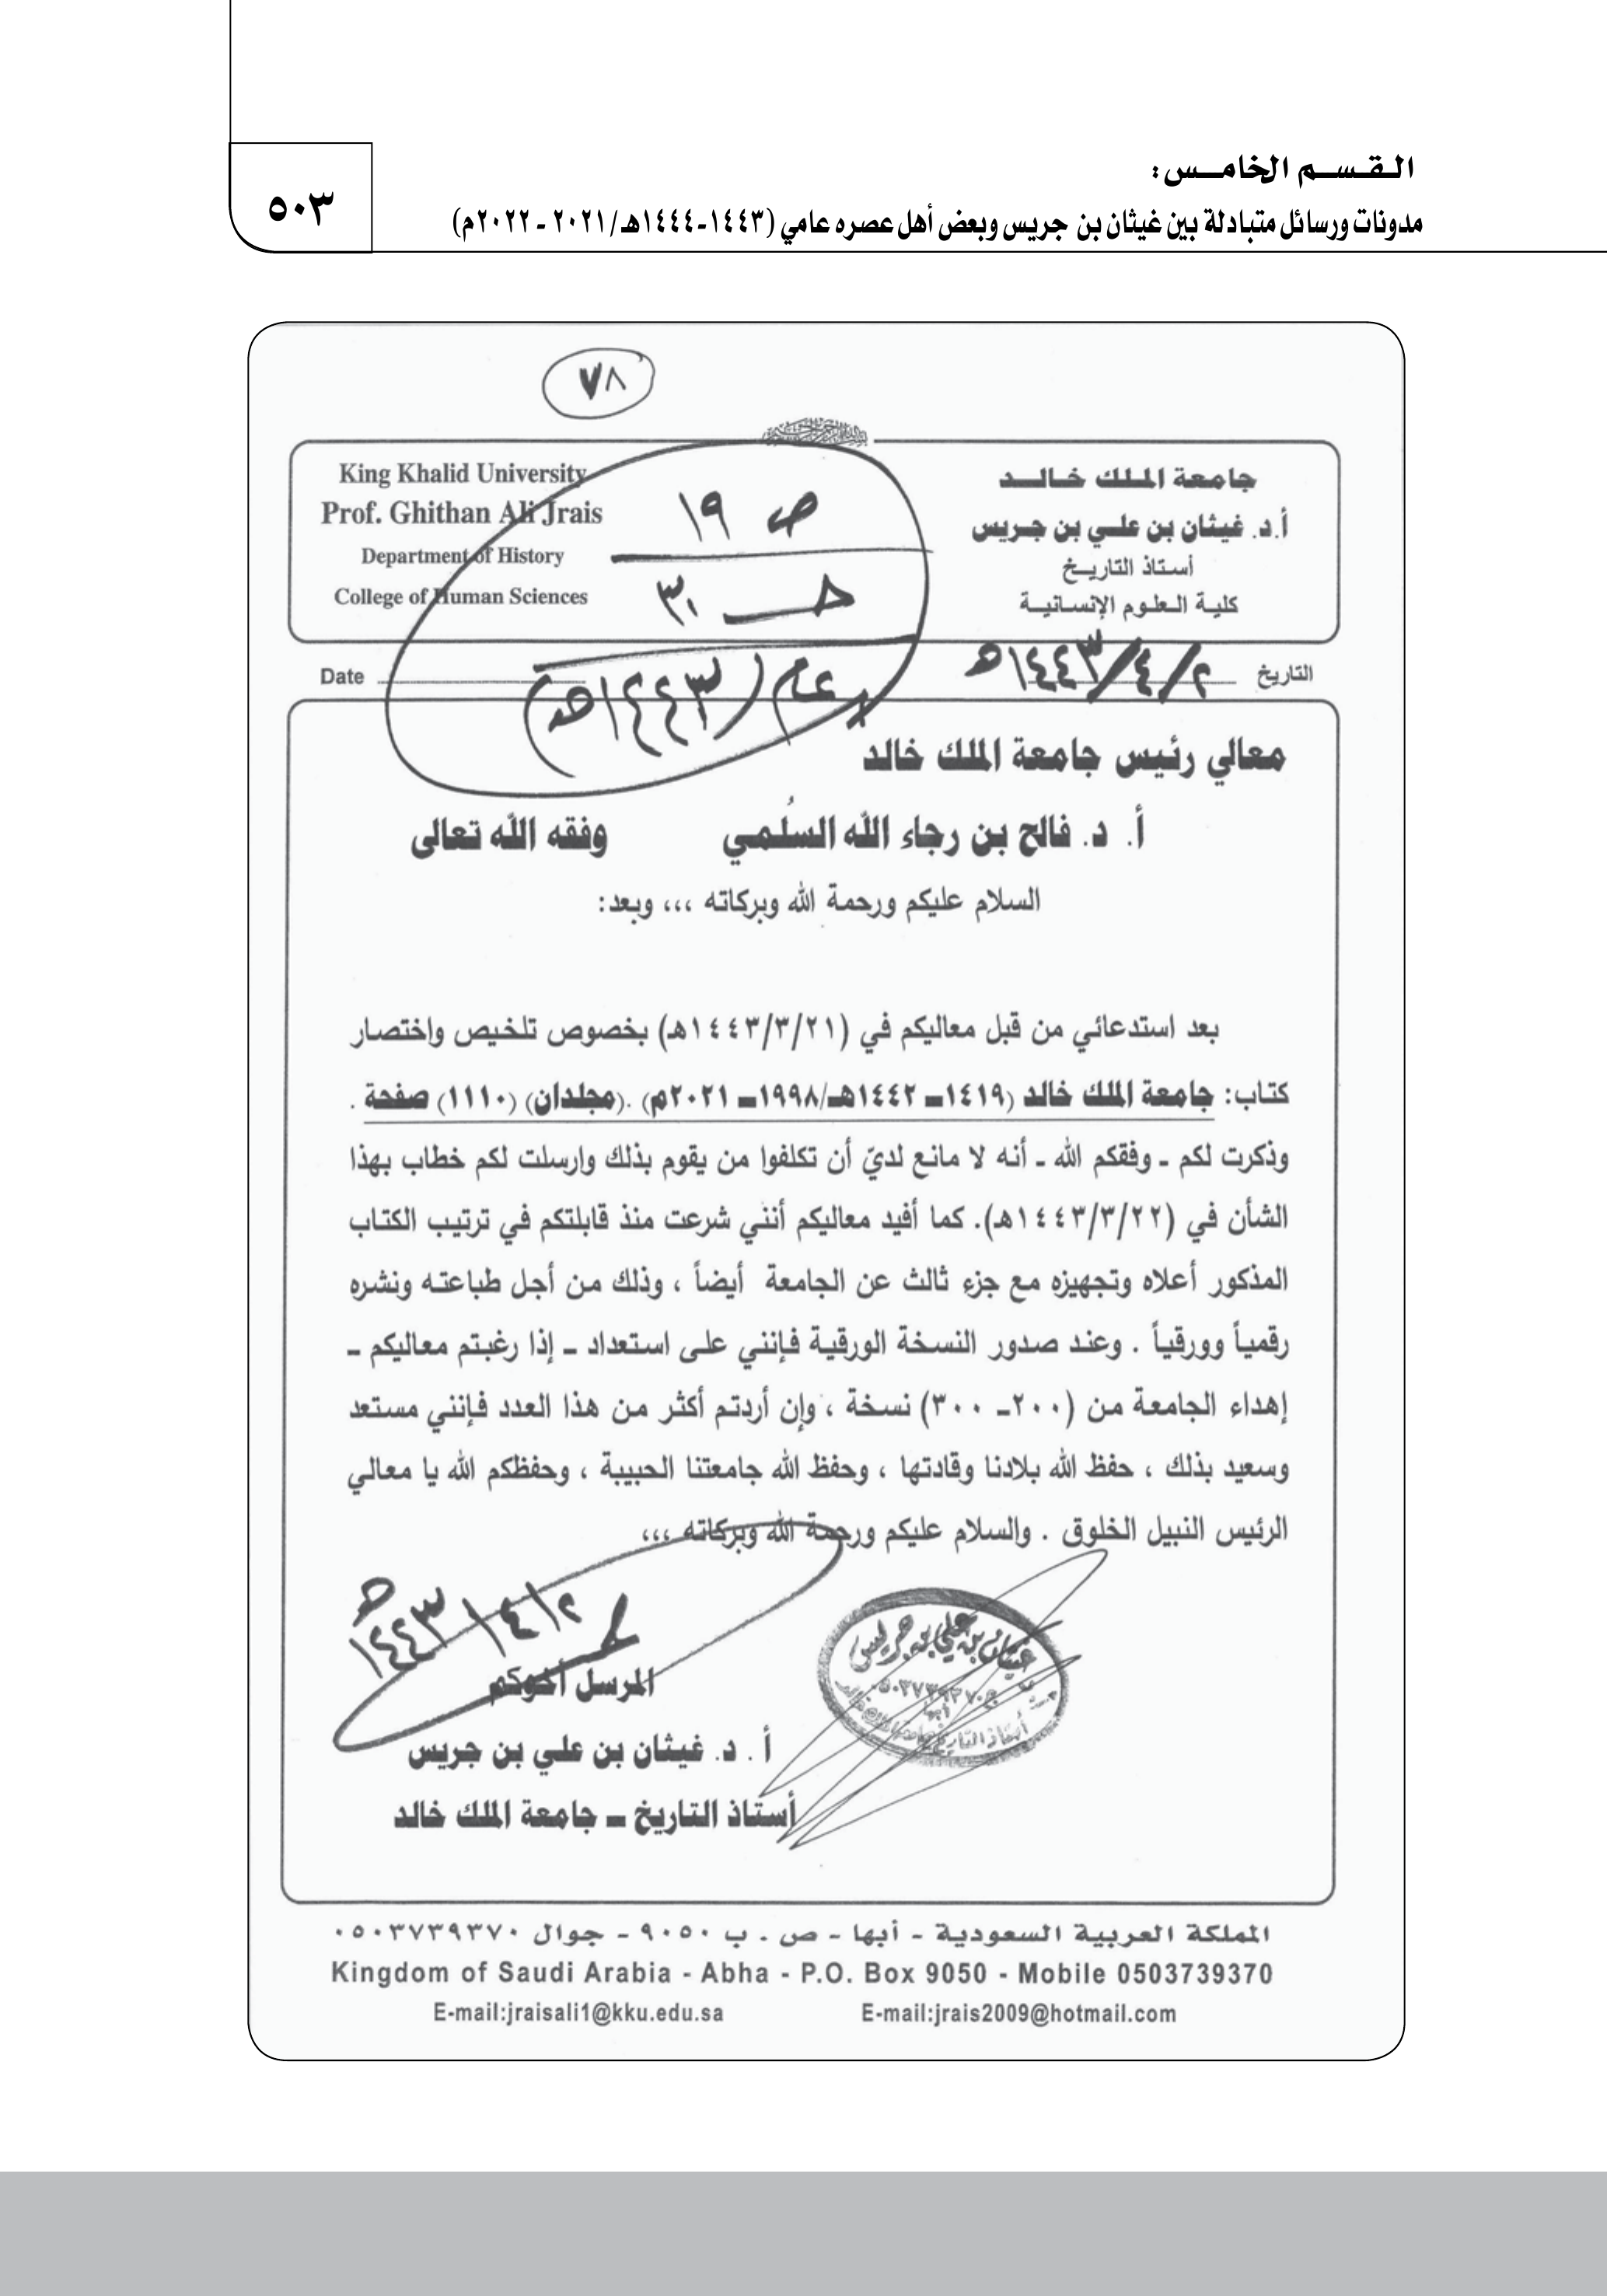 القسم الخامس:
مدونات ورسائل متبادلة بين غيثان بن جريس وبعض أهل عصره عامي (١٤٤٣-١٤٤٤هـ/٢٠٢١ - ٢٠٢٢م)
٥٠٣
٧٨
جامعة الملك خالد
أ.د. غيثان بن علي بن جريس
أستاذ التاريخ
كلية العلوم الإنسانية
King Khalid University
Prof. Ghithan Ali Jrais
Department of History
College of Human Sciences
ص ١٩
حـ ٣٠
عام (١٤٤٣هـ)
التاريخ ٢/٤/١٤٤٣هـ
Date
معالي رئيس جامعة الملك خالد
أ. د. فالح بن رجاء الله السلُمي وفقه الله تعالى
السلام عليكم ورحمة الله وبركاته ،،، وبعد:
بعد استدعائي من قبل معاليكم في (١٤٤٣/٣/٢١هـ) بخصوص تلخيص واختصار
كتاب: جامعة الملك خالد (١٤١٩ـ ١٤٤٢هـ/١٩٩٨ـ ٢٠٢١م) .(مجلدان) (١١١٠) صفحة .
وذكرت لكم ـ وفقكم الله ـ أنه لا مانع لديّ أن تكلفوا من يقوم بذلك وارسلت لكم خطاب بهذا
الشأن في (١٤٤٣/٣/٢٢هـ). كما أفيد معاليكم أنني شرعت منذ قابلتكم في ترتيب الكتاب
المذكور أعلاه وتجهيزه مع جزء ثالث عن الجامعة أيضاً ، وذلك من أجل طباعته ونشره
رقمياً وورقياً . وعند صدور النسخة الورقية فإنني على استعداد ـ إذا رغبتم معاليكم ـ
إهداء الجامعة من (٢٠٠ـ ٣٠٠) نسخة ، وإن أردتم أكثر من هذا العدد فإنني مستعد
وسعيد بذلك ، حفظ الله بلادنا وقادتها ، وحفظ الله جامعتنا الحبيبة ، وحفظكم الله يا معالي
الرئيس النبيل الخلوق . والسلام عليكم ورحمة الله وبركاته ،،،
٢/٤/١٤٤٣هـ
المرسل أخوكم
أ . د. غيثان بن علي بن جريس
أستاذ التاريخ ـ جامعة الملك خالد
غيثان بن علي بن جريس
٠٥٠٣٧٣٩٣٧٠
أبها
المملكة العربية السعودية - أبها - ص . ب ٩٠٥٠ - جوال ٠٥٠٣٧٣٩٣٧٠
Kingdom of Saudi Arabia - Abha - P.O. Box 9050 - Mobile 0503739370
E-mail:jraisali1@kku.edu.sa E-mail:jrais2009@hotmail.com